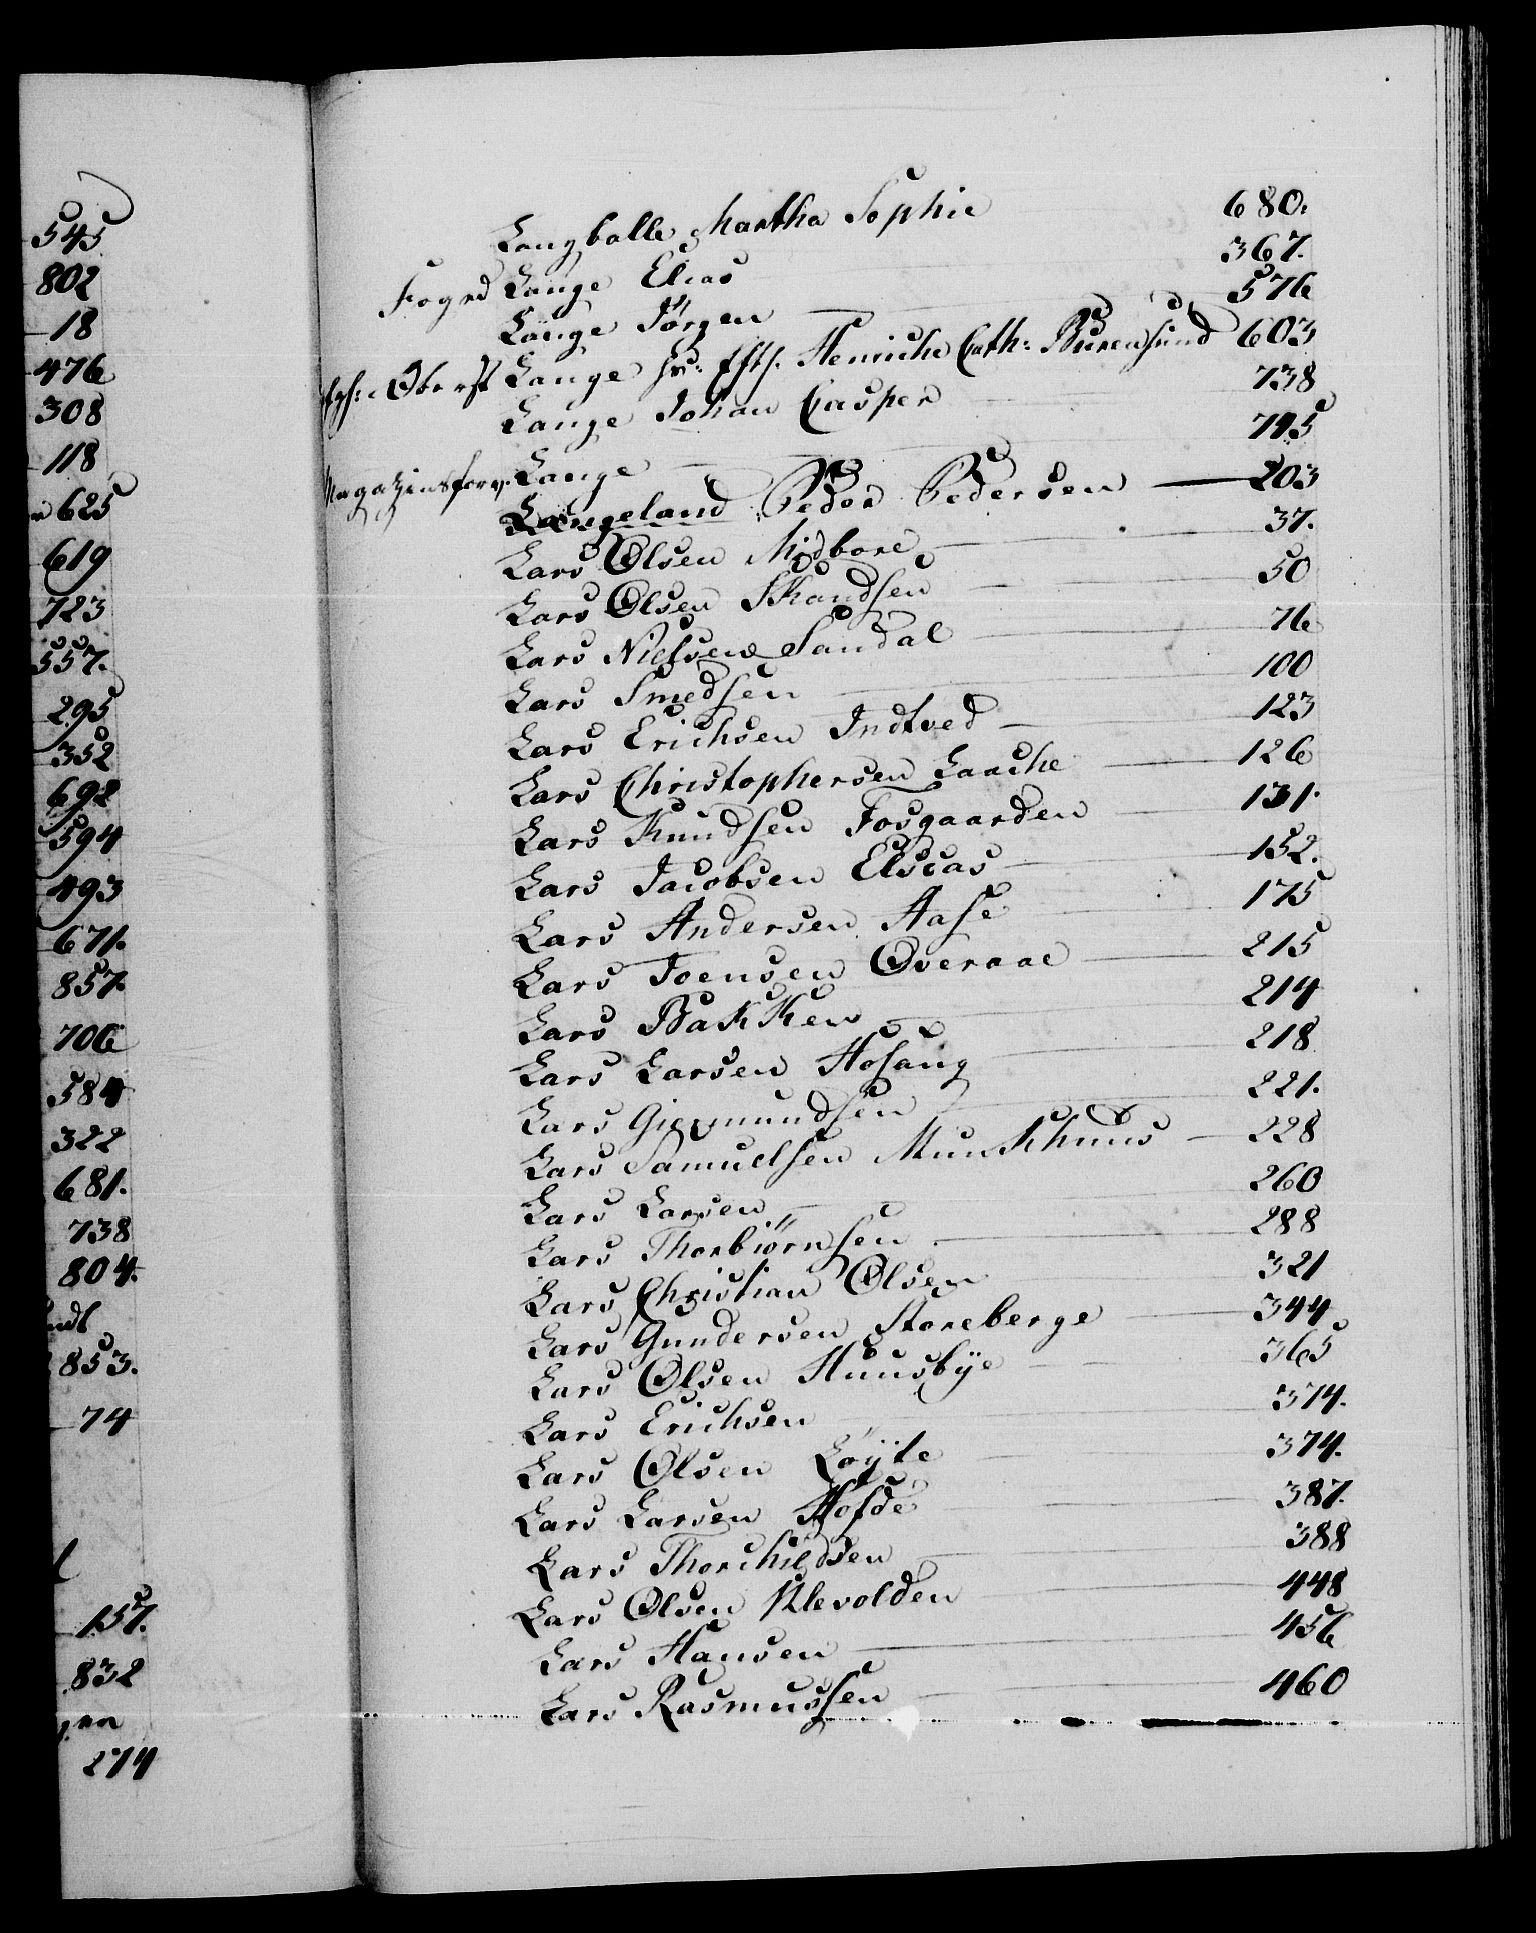 545
802
18
476
308
118
625
619
723
557.
295
352
692
594
493
671.
857.
706
584
322
681.
738
804.
853.
74
157.
832
214
Langballe Martha Sophie 680.
Foged Lange Elias 367.
Lange Jörgen 576
Oberst Lange Henriche Cath: Burensund 603
Lange Johan Casper 738
Magazinsforv. Lange 795
Langeland Peder Pedersen 203
Lars Olsen Midboe 37.
Lars Olsen Skandsen 50
Lars Nielsen Sandal 76
Lars Smedsen 100
Lars Erichsen Indtved 123
Lars Christophersen Laache 126
Lars Knudsen Fosgaarden 131.
Lars Jacobsen Elscas 152.
Lars Andersen Aase 175
Lars Joensen Overaae 215
Lars Bakken 214
Lars Larsen Hosang 218
Lars Giermundsen 221.
Lars Samuelsen Munkhuus 228
Lars Larsen 260
Lars Thorbiörnsen 288
Lars Christian Olsen 321
Lars Gundersen Storeberge 344
Lars Olsen Huusbÿe 365
Lars Erichsen 374.
Lars Olsen Löÿte 374.
Lars Larsen Hofde 387.
Lars Thorchildsen 388
Lars Olsen Klevolden 448
Lars Hansen 456
Lars Rasmussen 460